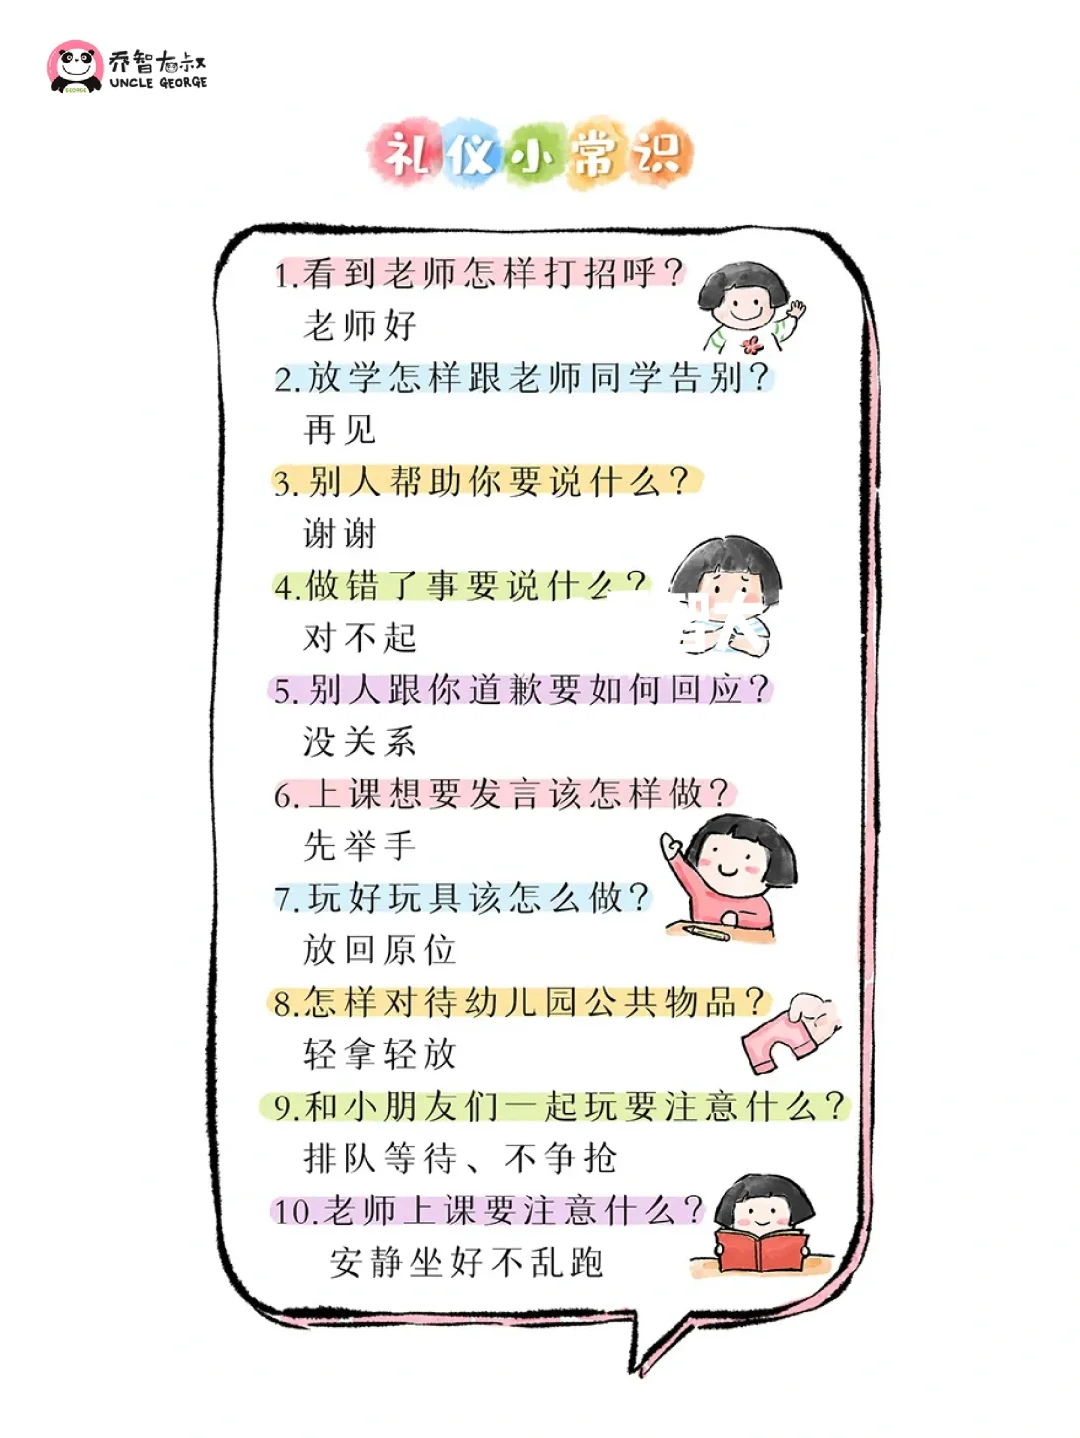 乔智大叔
UNCLE GEORGE
GEORGE
礼仪小常识
1.看到老师怎样打招呼？
老师好
2.放学怎样跟老师同学告别？
再见
3.别人帮助你要说什么？
谢谢
4.做错了事要说什么？
对不起
5.别人跟你道歉要如何回应？
没关系
6.上课想要发言该怎样做？
先举手
7.玩好玩具该怎么做？
放回原位
8.怎样对待幼儿园公共物品？
轻拿轻放
9.和小朋友们一起玩要注意什么？
排队等待、不争抢
10.老师上课要注意什么？
安静坐好不乱跑